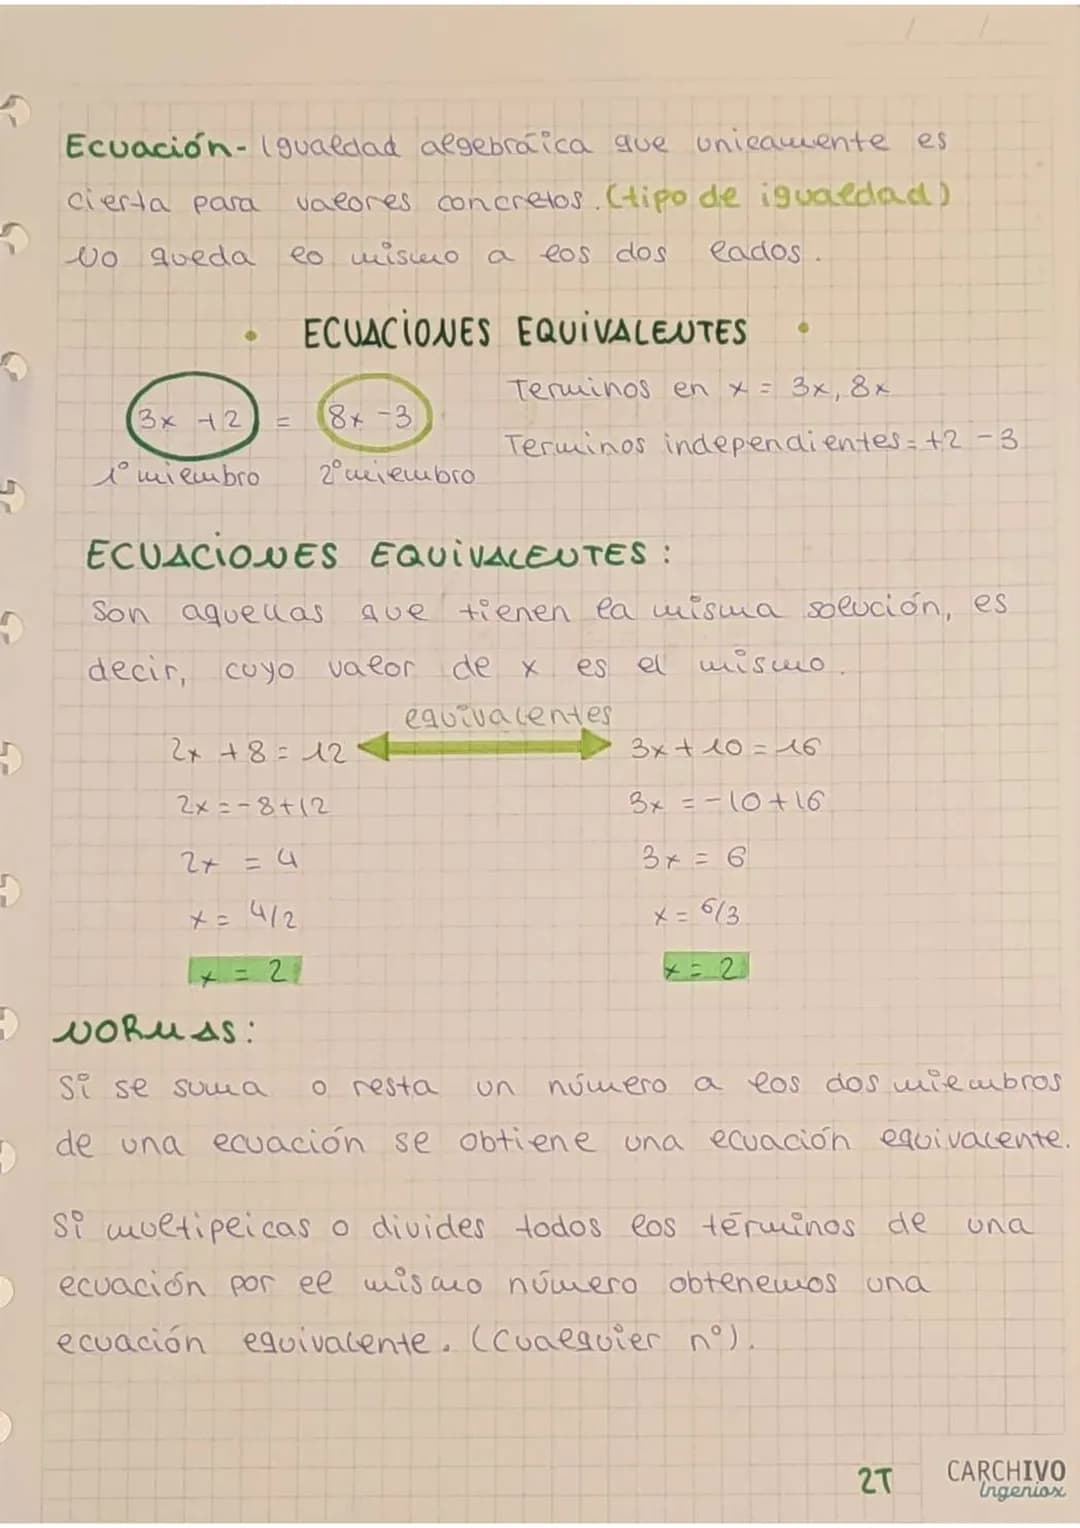 Ecuación- Igualdad algebráica que unicamente es
cierta para valores concretos. (tipo de igualdad)
No queda lo mismo a los dos lados.
• ECUACIONES EQUIVALENTES •
3x +2 = 8x -3
Terminos en x = 3x, 8x
Terminos independientes = +2 -3
1º miembro 2º miembro
ECUACIONES EQUIVALENTES:
Son aquellas que tienen la misma solución, es
decir, cuyo valor de x es el mismo.
equivalentes
2x +8 = 12 3x + 10 = 16
2x = -8+12 3x = -10 +16
2x = 4 3x = 6
x = 4/2 x = 6/3
x = 2 x = 2
NORMAS:
Si se suma o resta un número a los dos miembros
de una ecuación se obtiene una ecuación equivalente.
Si multiplicas o divides todos los términos de una
ecuación por el mismo número obtenemos una
ecuación equivalente. (Cualquier nº).
2T
CARCHIVO
Ingeniox